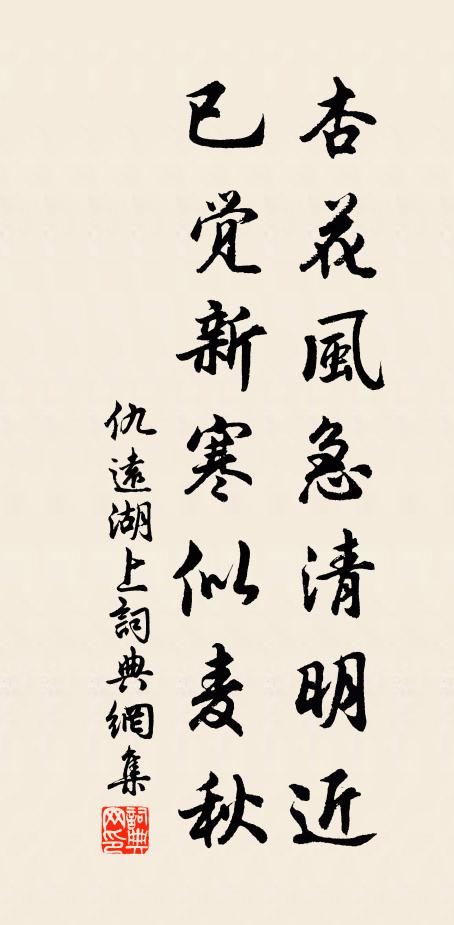 杏花風急清明近
已觉新寒似麦秋
仇遠湖上詞典網集
詞典網印